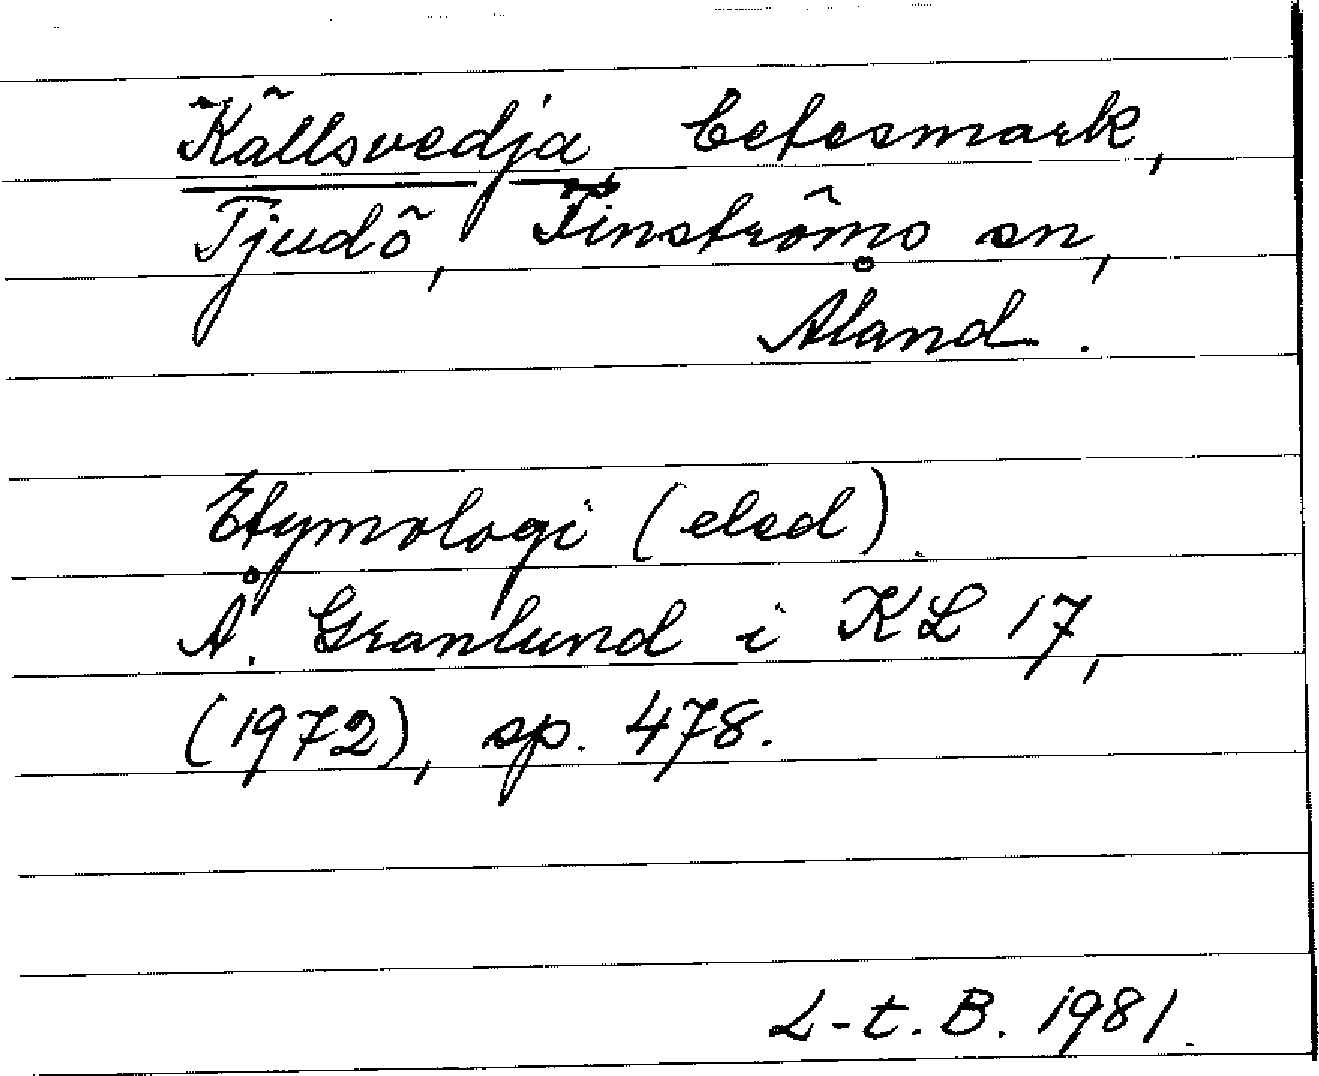 Källsvedja betesmark,
Tjudö, Finströms sn,
Åland.
Etymologi (eled).
Å. Granlund i KL 17,
(1972), sp. 478.
L-t. B. 1981.